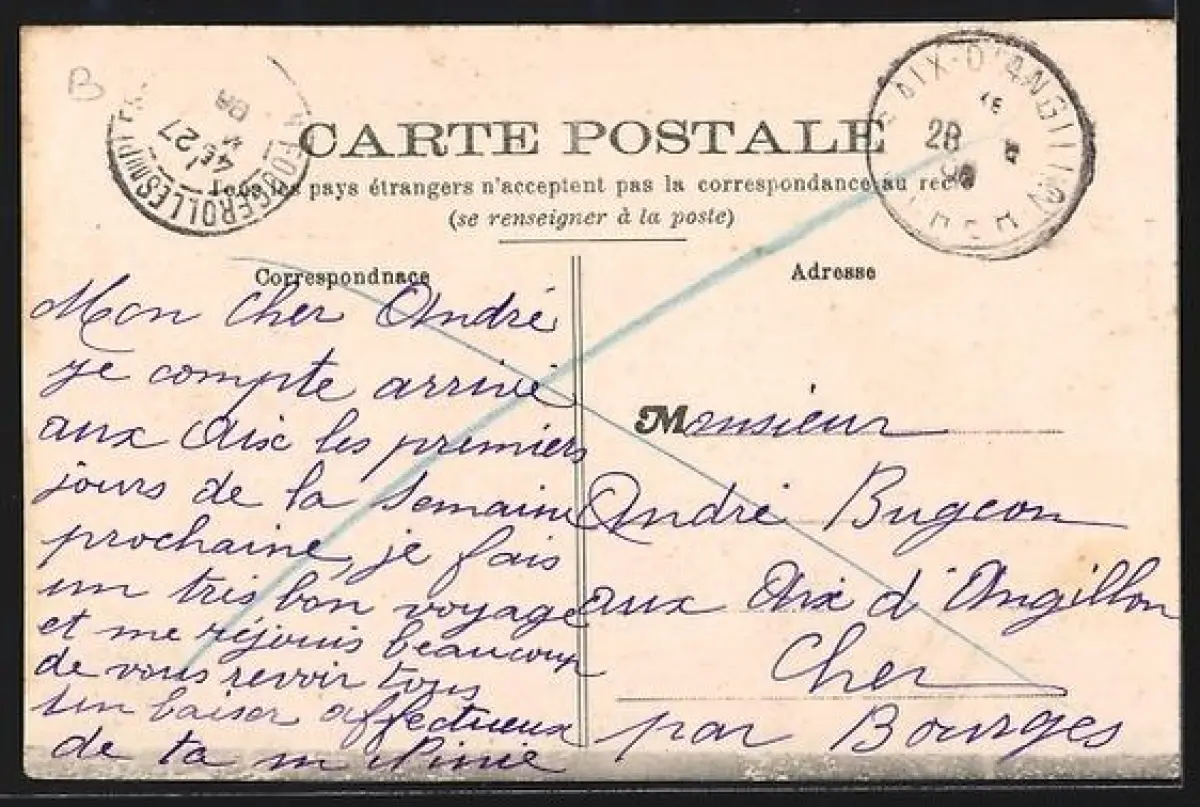 B
CARTE POSTALE
Tous les pays étrangers n'acceptent pas la correspondance au recto
(se renseigner à la poste)
FOUGEROLLES
27
AIX-D'ANGILLON
28
Correspondnace
Mon cher André
je compte arrivé
aux Aix les premiers
jours de la semaine
prochaine, je fais
un très bon voyage
et me réjouis beaucoup
de vous revoir tous
Un baiser affectueux
de ta
Adresse
Monsieur
André Bugeon
aux Aix d'Angillon
Cher
par Bourges